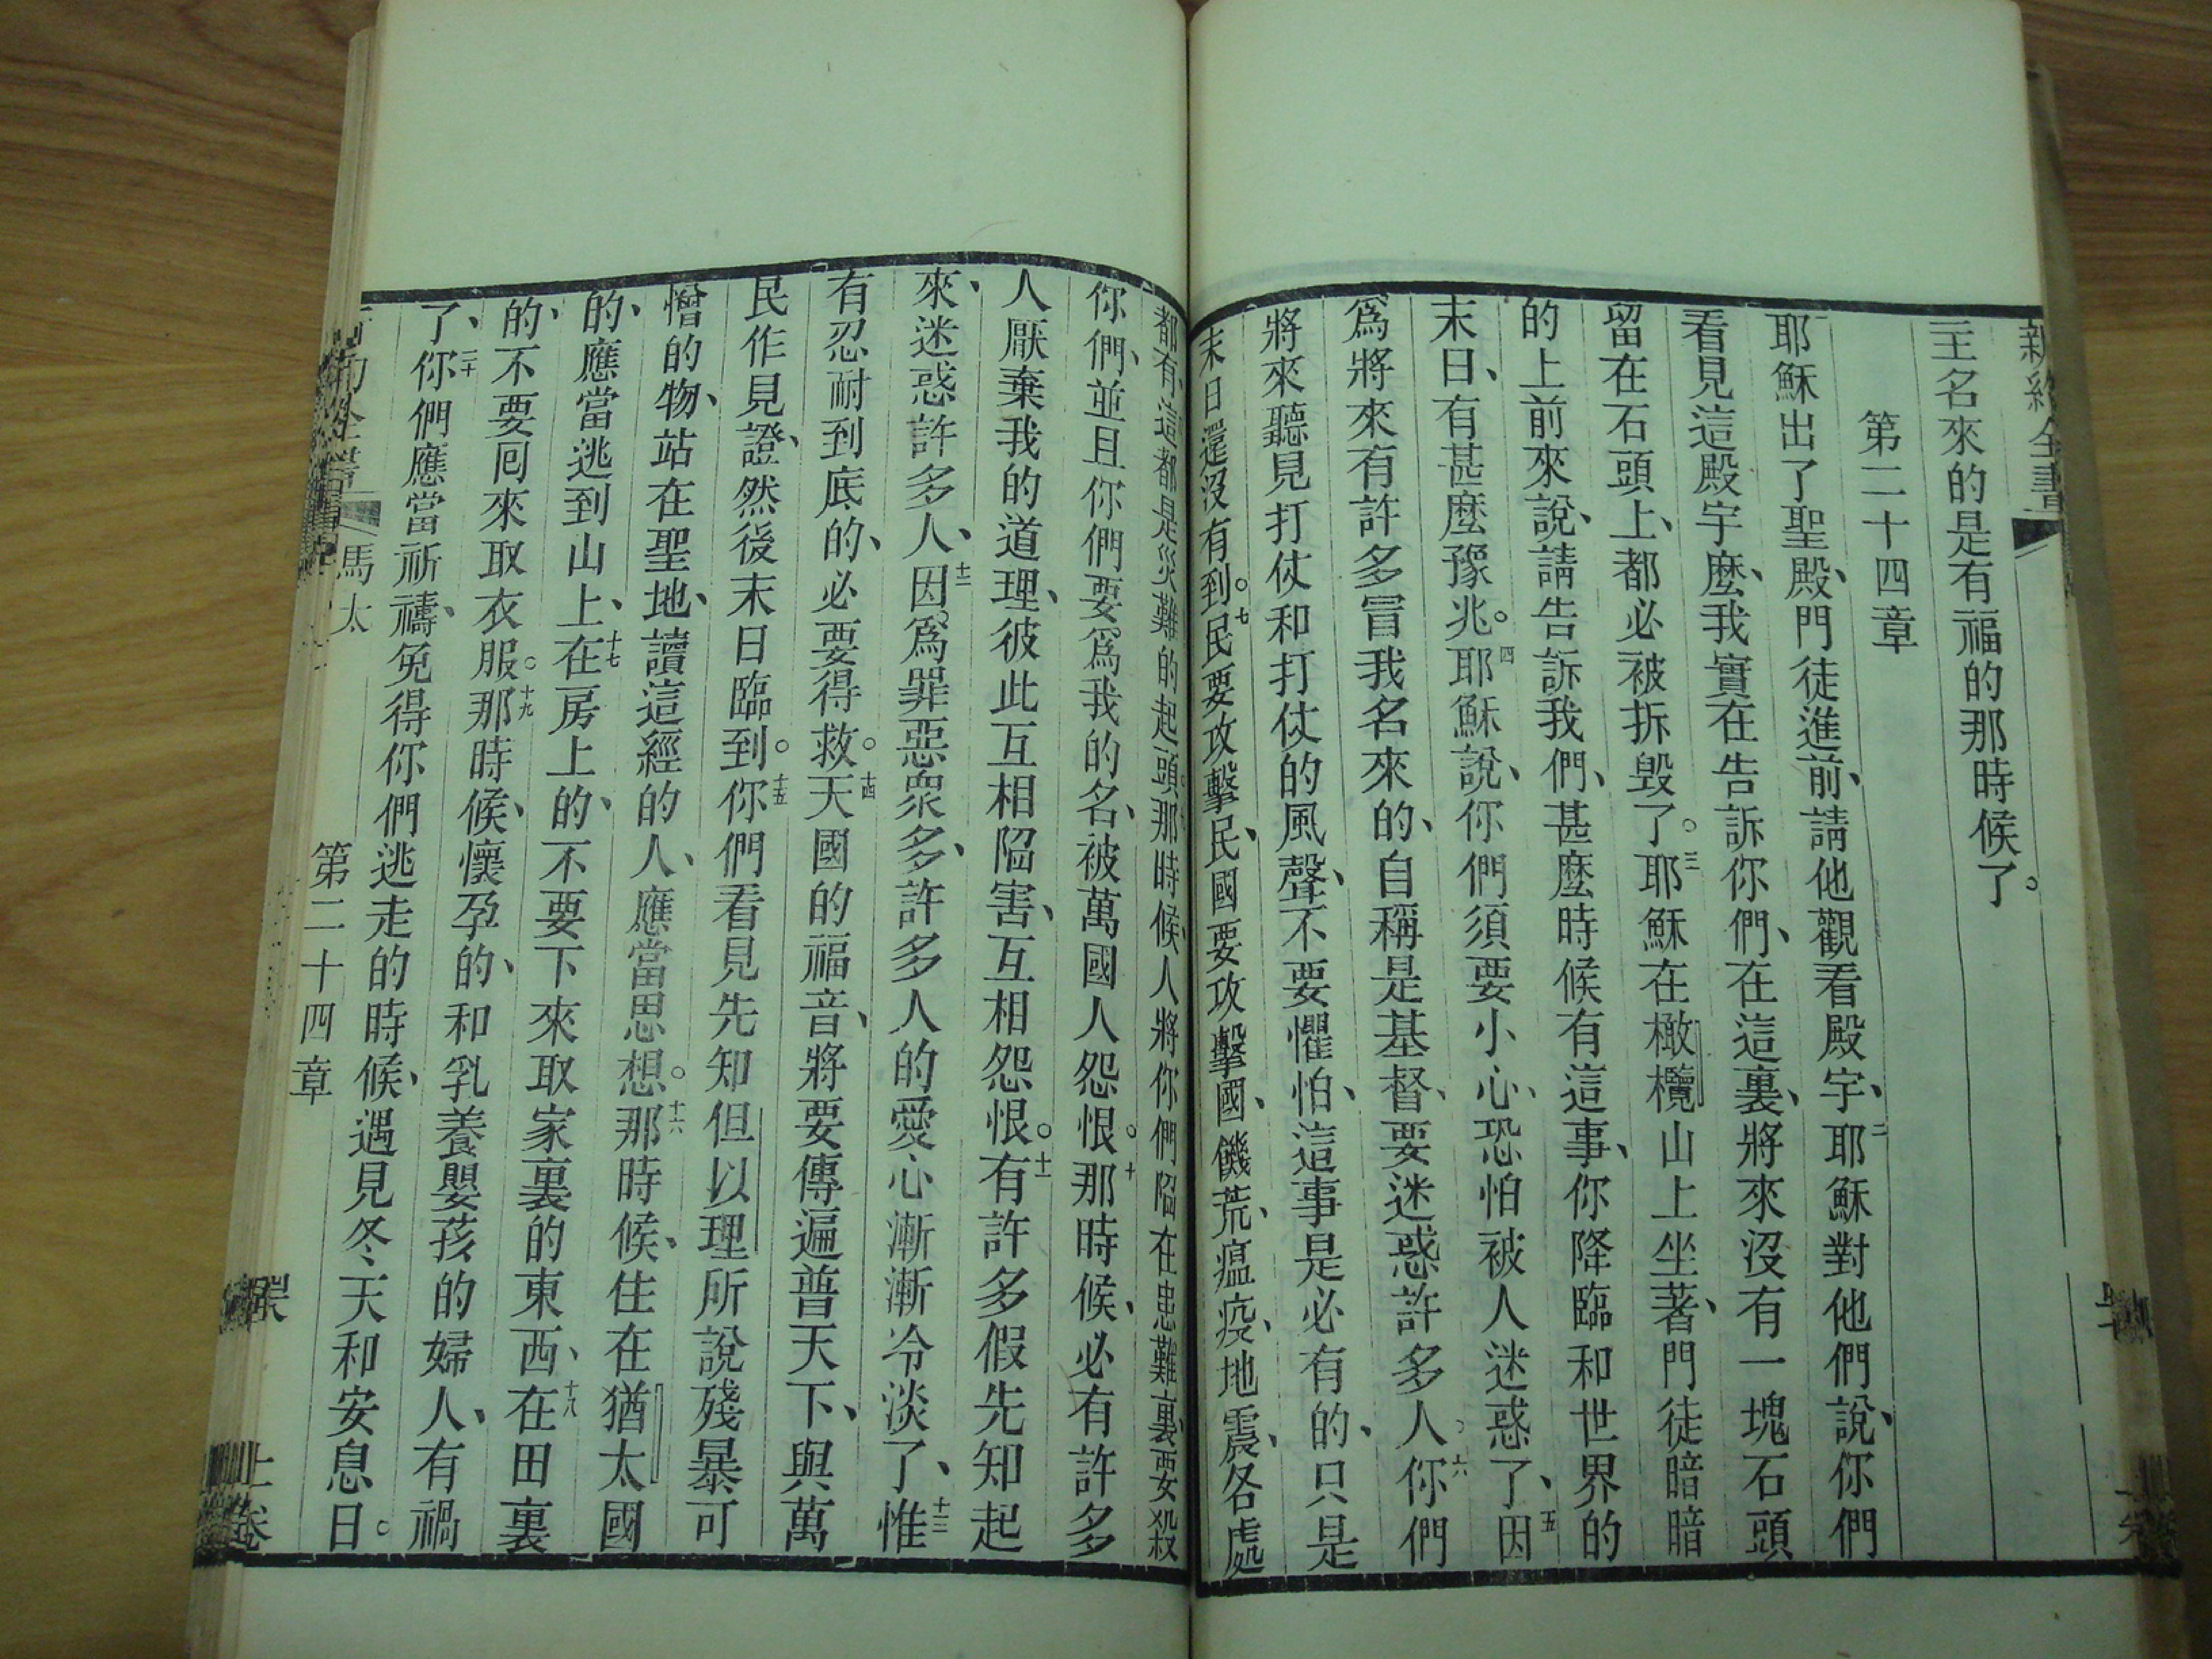 新約全書
主名來的是有福的那時候了。
第二十四章
耶穌出了聖殿、門徒進前、請他觀看殿宇、二耶穌對他們說、你們
看見這殿宇麽、我實在告訴你們、在這裏、將來沒有一塊石頭
留在石頭上、都必被拆毀了。三耶穌在橄欖山上坐著、門徒暗暗
的上前來、說、請告訴我們、甚麽時候有這事、你降臨和世界的
末日、有甚麽豫兆。四耶穌說、你們須要小心、恐怕被人迷惑了、五因
爲將來有許多冒我名來的、自稱是基督、要迷惑許多人。六你們
將來聽見打仗和打仗的風聲、不要懼怕、這事是必有的、只是
末日還沒有到。七民要攻擊民、國要攻擊國、饑荒、瘟疫、地震、各處
都有、這都是災難的起頭。那時候、人將你們陷在患難裏、要殺
你們、並且你們要爲我的名、被萬國人怨恨。十那時候、必有許多
人厭棄我的道理、彼此互相陷害、互相怨恨。十一有許多假先知起
來、迷惑許多人、十二因爲罪惡衆多、許多人的愛心漸漸冷淡了、十三惟
有忍耐到底的、必要得救。十四天國的福音、將要傳遍普天下、與萬
民作見證、然後末日臨到。十五你們看見先知但以理所說殘暴可
憎的物、站在聖地、讀這經的人、應當思想。十六那時候、住在猶太國
的、應當逃到山上、十七在房上的、不要下來取家裏的東西、十八在田裏
的、不要囘來取衣服。十九那時候、懷孕的、和乳養嬰孩的婦人、有禍
了、二十你們應當祈禱、免得你們逃走的時候、遇見冬天和安息日。
馬太 第二十四章 上卷